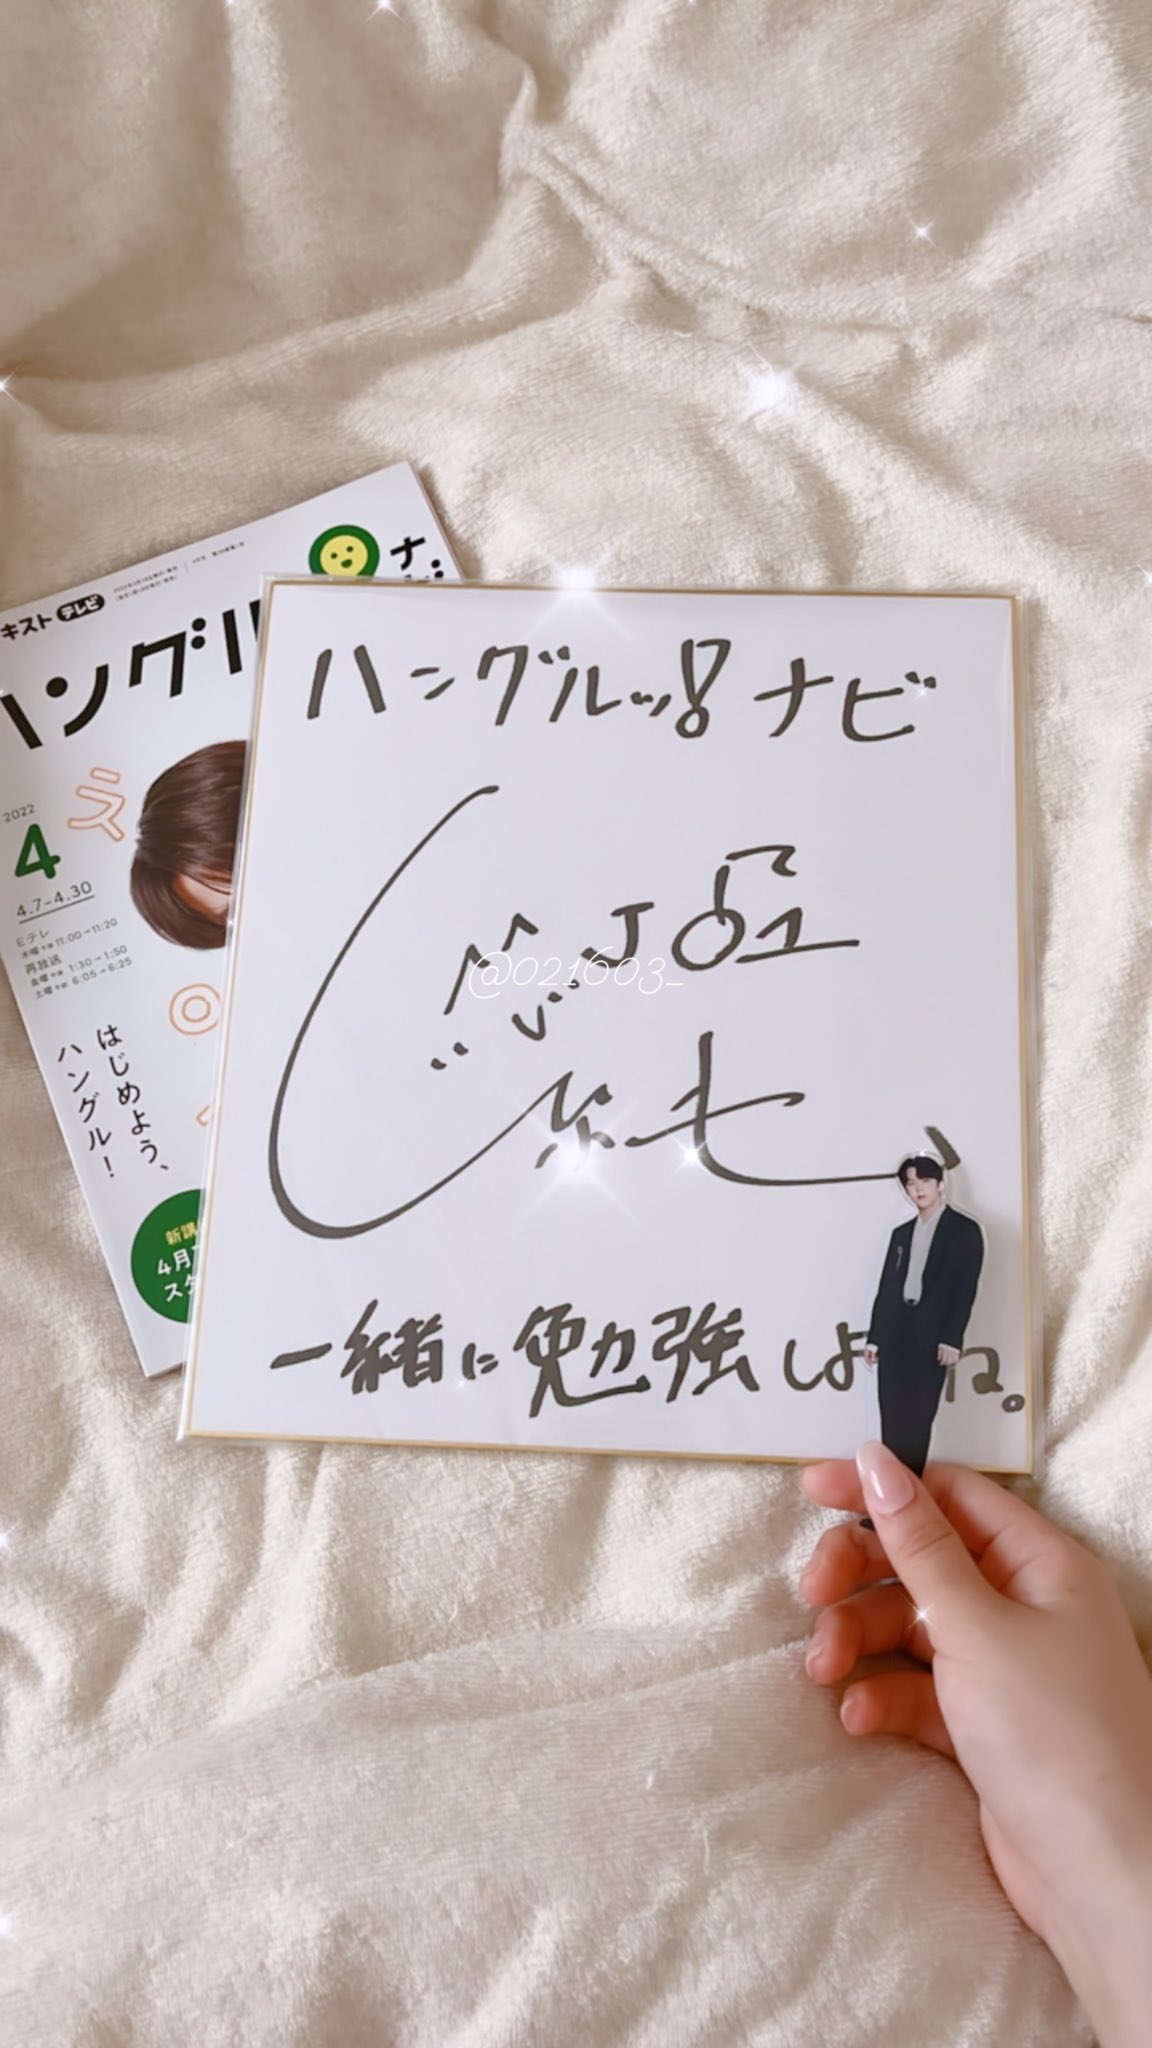 キスト テレビ
ナ
ハングル
2022
4
4.7-4.30
Eテレ
木曜 午後 11:00→11:20
再放送
金曜 午後 1:30→1:50
土曜 午前 6:05→6:25
はじめよう、
ハングル!
新講
4月
スタ
ハングルッ!ナビ
@021603_
一緒に勉強しよ ね。